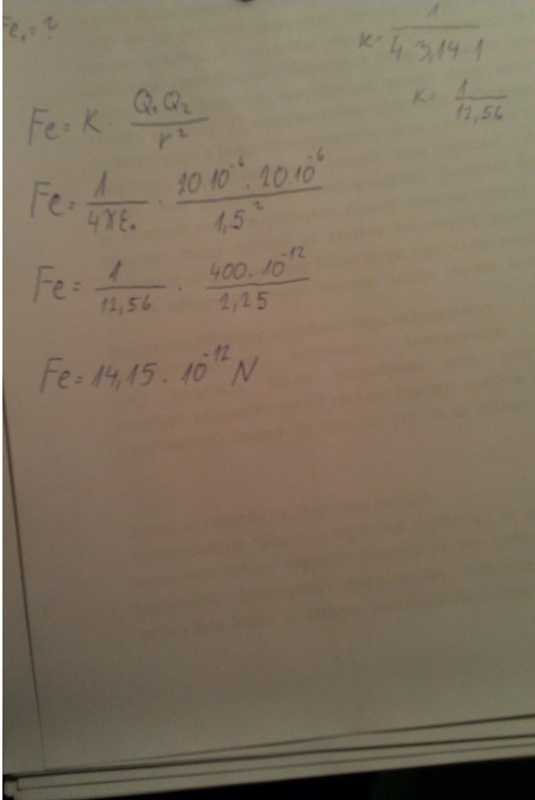 Fe₁ = ?
K = 1 / 4·3,14·1
K = 1 / 12,56
Fe = K · Q₁Q₂ / r²
Fe = 1 / 4πε₀ · 20·10⁻⁶ · 20·10⁻⁶ / 1,5²
Fe = 1 / 12,56 · 400·10⁻¹² / 2,25
Fe = 14,15 · 10⁻¹² N